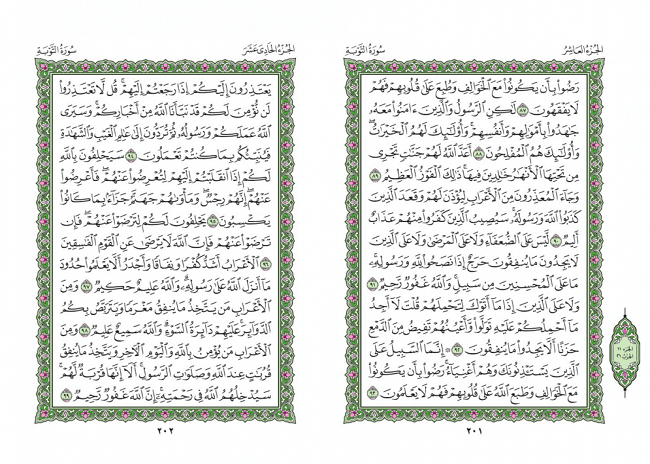 الجزء العاشر
سورة التوبة
رضوا بأن يكونوا مع الخوالف وطبع على قلوبهم فهم
لا يفقهون ٨٧ لكن الرسول والذين ءامنوا معه
جهدوا بأمولهم وأنفسهم وأولئك لهم الخيرت
وأولئك هم المفلحون ٨٨ أعد الله لهم جنت تجرى
من تحتها الأنهر خلدين فيها ذلك الفوز العظيم ٨٩
وجاء المعذرون من الأعراب ليؤذن لهم وقعد الذين
كذبوا الله ورسوله سيصيب الذين كفروا منهم عذاب
أليم ٩٠ ليس على الضعفاء ولا على المرضى ولا على الذين
لا يجدون ما ينفقون حرج إذا نصحوا لله ورسوله
ما على المحسنين من سبيل والله غفور رحيم ٩١
ولا على الذين إذا ما أتوك لتحملهم قلت لا أجد
ما أحملكم عليه تولوا وأعينهم تفيض من الدمع
حزنا ألا يجدوا ما ينفقون ٩٢ إنما السبيل على
الذين يستءذنونك وهم أغنياء رضوا بأن يكونوا
مع الخوالف وطبع الله على قلوبهم فهم لا يعلمون ٩٣
٢٠١
الجزء الحادى عشر
سورة التوبة
يعتذرون إليكم إذا رجعتم إليهم قل لا تعتذروا
لن نؤمن لكم قد نبأنا الله من أخباركم وسيرى
الله عملكم ورسوله ثم تردون إلى علم الغيب والشهدة
فينبئكم بما كنتم تعملون ٩٤ سيحلفون بالله
لكم إذا انقلبتم إليهم لتعرضوا عنهم فأعرضوا
عنهم إنهم رجس ومأوىهم جهنم جزاء بما كانوا
يكسبون ٩٥ يحلفون لكم لترضوا عنهم فإن
ترضوا عنهم فإن الله لا يرضى عن القوم الفسقين
٩٦ الأعراب أشد كفرا ونفاقا وأجدر ألا يعلموا حدود
ما أنزل الله على رسوله والله عليم حكيم ٩٧ ومن
الأعراب من يتخذ ما ينفق مغرما ويتربص بكم
الدوائر عليهم دائرة السوء والله سميع عليم ٩٨ ومن
الأعراب من يؤمن بالله واليوم الآخر ويتخذ ما ينفق
قربت عند الله وصلوت الرسول ألا إنها قربة لهم
سيدخلهم الله فى رحمته إن الله غفور رحيم ٩٩
٢٠٢